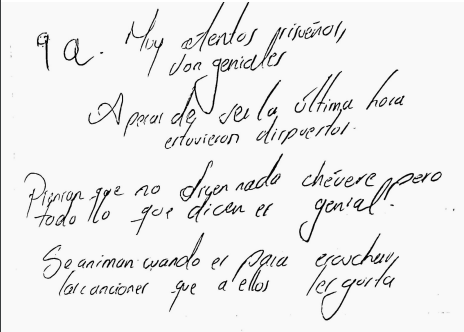 9a. Muy atentos, risueños,
son geniales
A pesar de ser la última hora
estuvieron dispuestos.
Piensan que no dicen nada chévere pero
todo lo que dicen es genial.
Se animan cuando es para escuchar
las canciones que a ellos les gusta